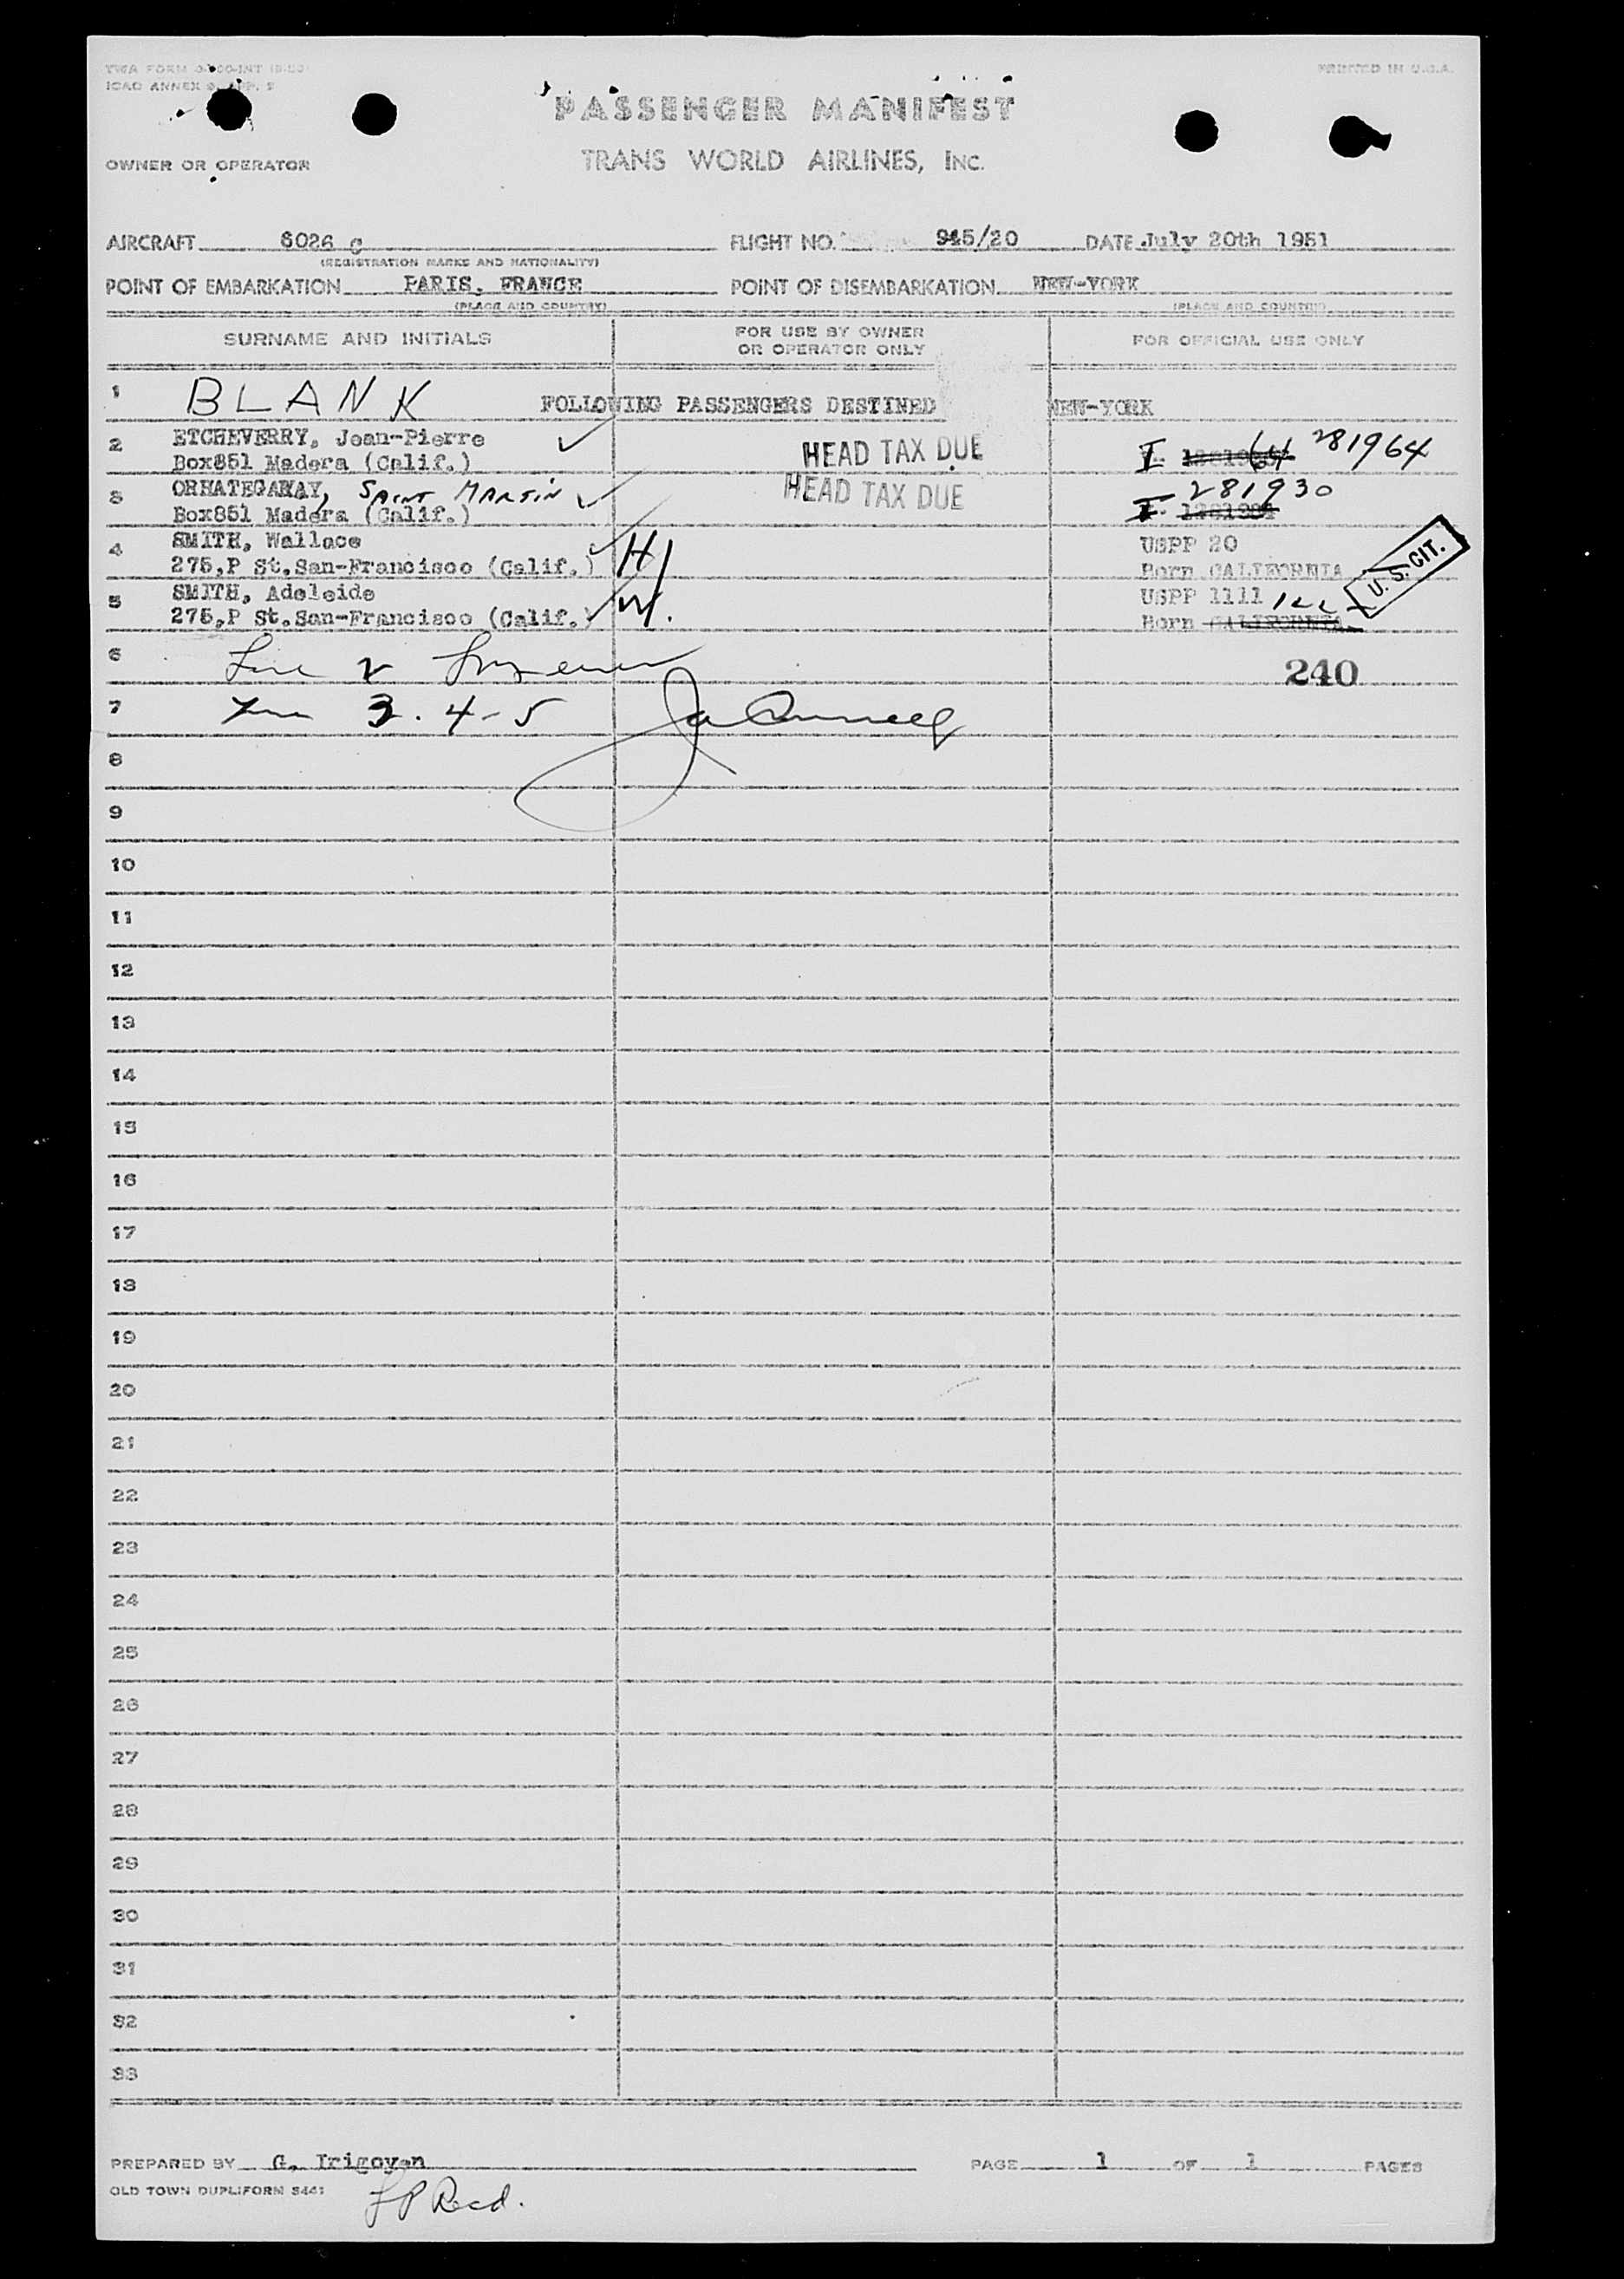 PRINTED IN U.S.A.
ICAO ANNEX
PASSENGER MANIFEST
OWNER OR OPERATOR
TRANS WORLD AIRLINES, INC.
AIRCRAFT 6026 C FLIGHT NO. 945/20 DATE July 20th 1951
(REGISTRATION MARKS AND NATIONALITY)
POINT OF EMBARKATION PARIS, FRANCE POINT OF DISEMBARKATION NEW-YORK
(PLACE AND COUNTRY) (PLACE AND COUNTRY)
SURNAME AND INITIALS FOR USE BY OWNER OR OPERATOR ONLY FOR OFFICIAL USE ONLY
1 BLANK FOLLOWING PASSENGERS DESTINED NEW-YORK
2 ETCHEVERRY, Jean-Pierre HEAD TAX DUE I 281964
Box851 Madera (Calif.)
3 SAINT MARTIN HEAD TAX DUE I 281930
Box851 Madera (Calif.)
4 SMITH, Wallace H USPP 20
275,P St.San-Francisco (Calif.) Born CALIFORNIA
U.S. CIT.
5 SMITH, Adeleide W. USPP 1111
275,P St.San-Francisco (Calif.) Born CALIFORNIA
6 240
7 3. 4-5
8
9
10
11
12
13
14
15
16
17
18
19
20
21
22
23
24
25
26
27
28
29
30
31
32
33
PREPARED BY G. Irigoyen PAGE 1 OF 1 PAGES
OLD TOWN DUPLIFORM